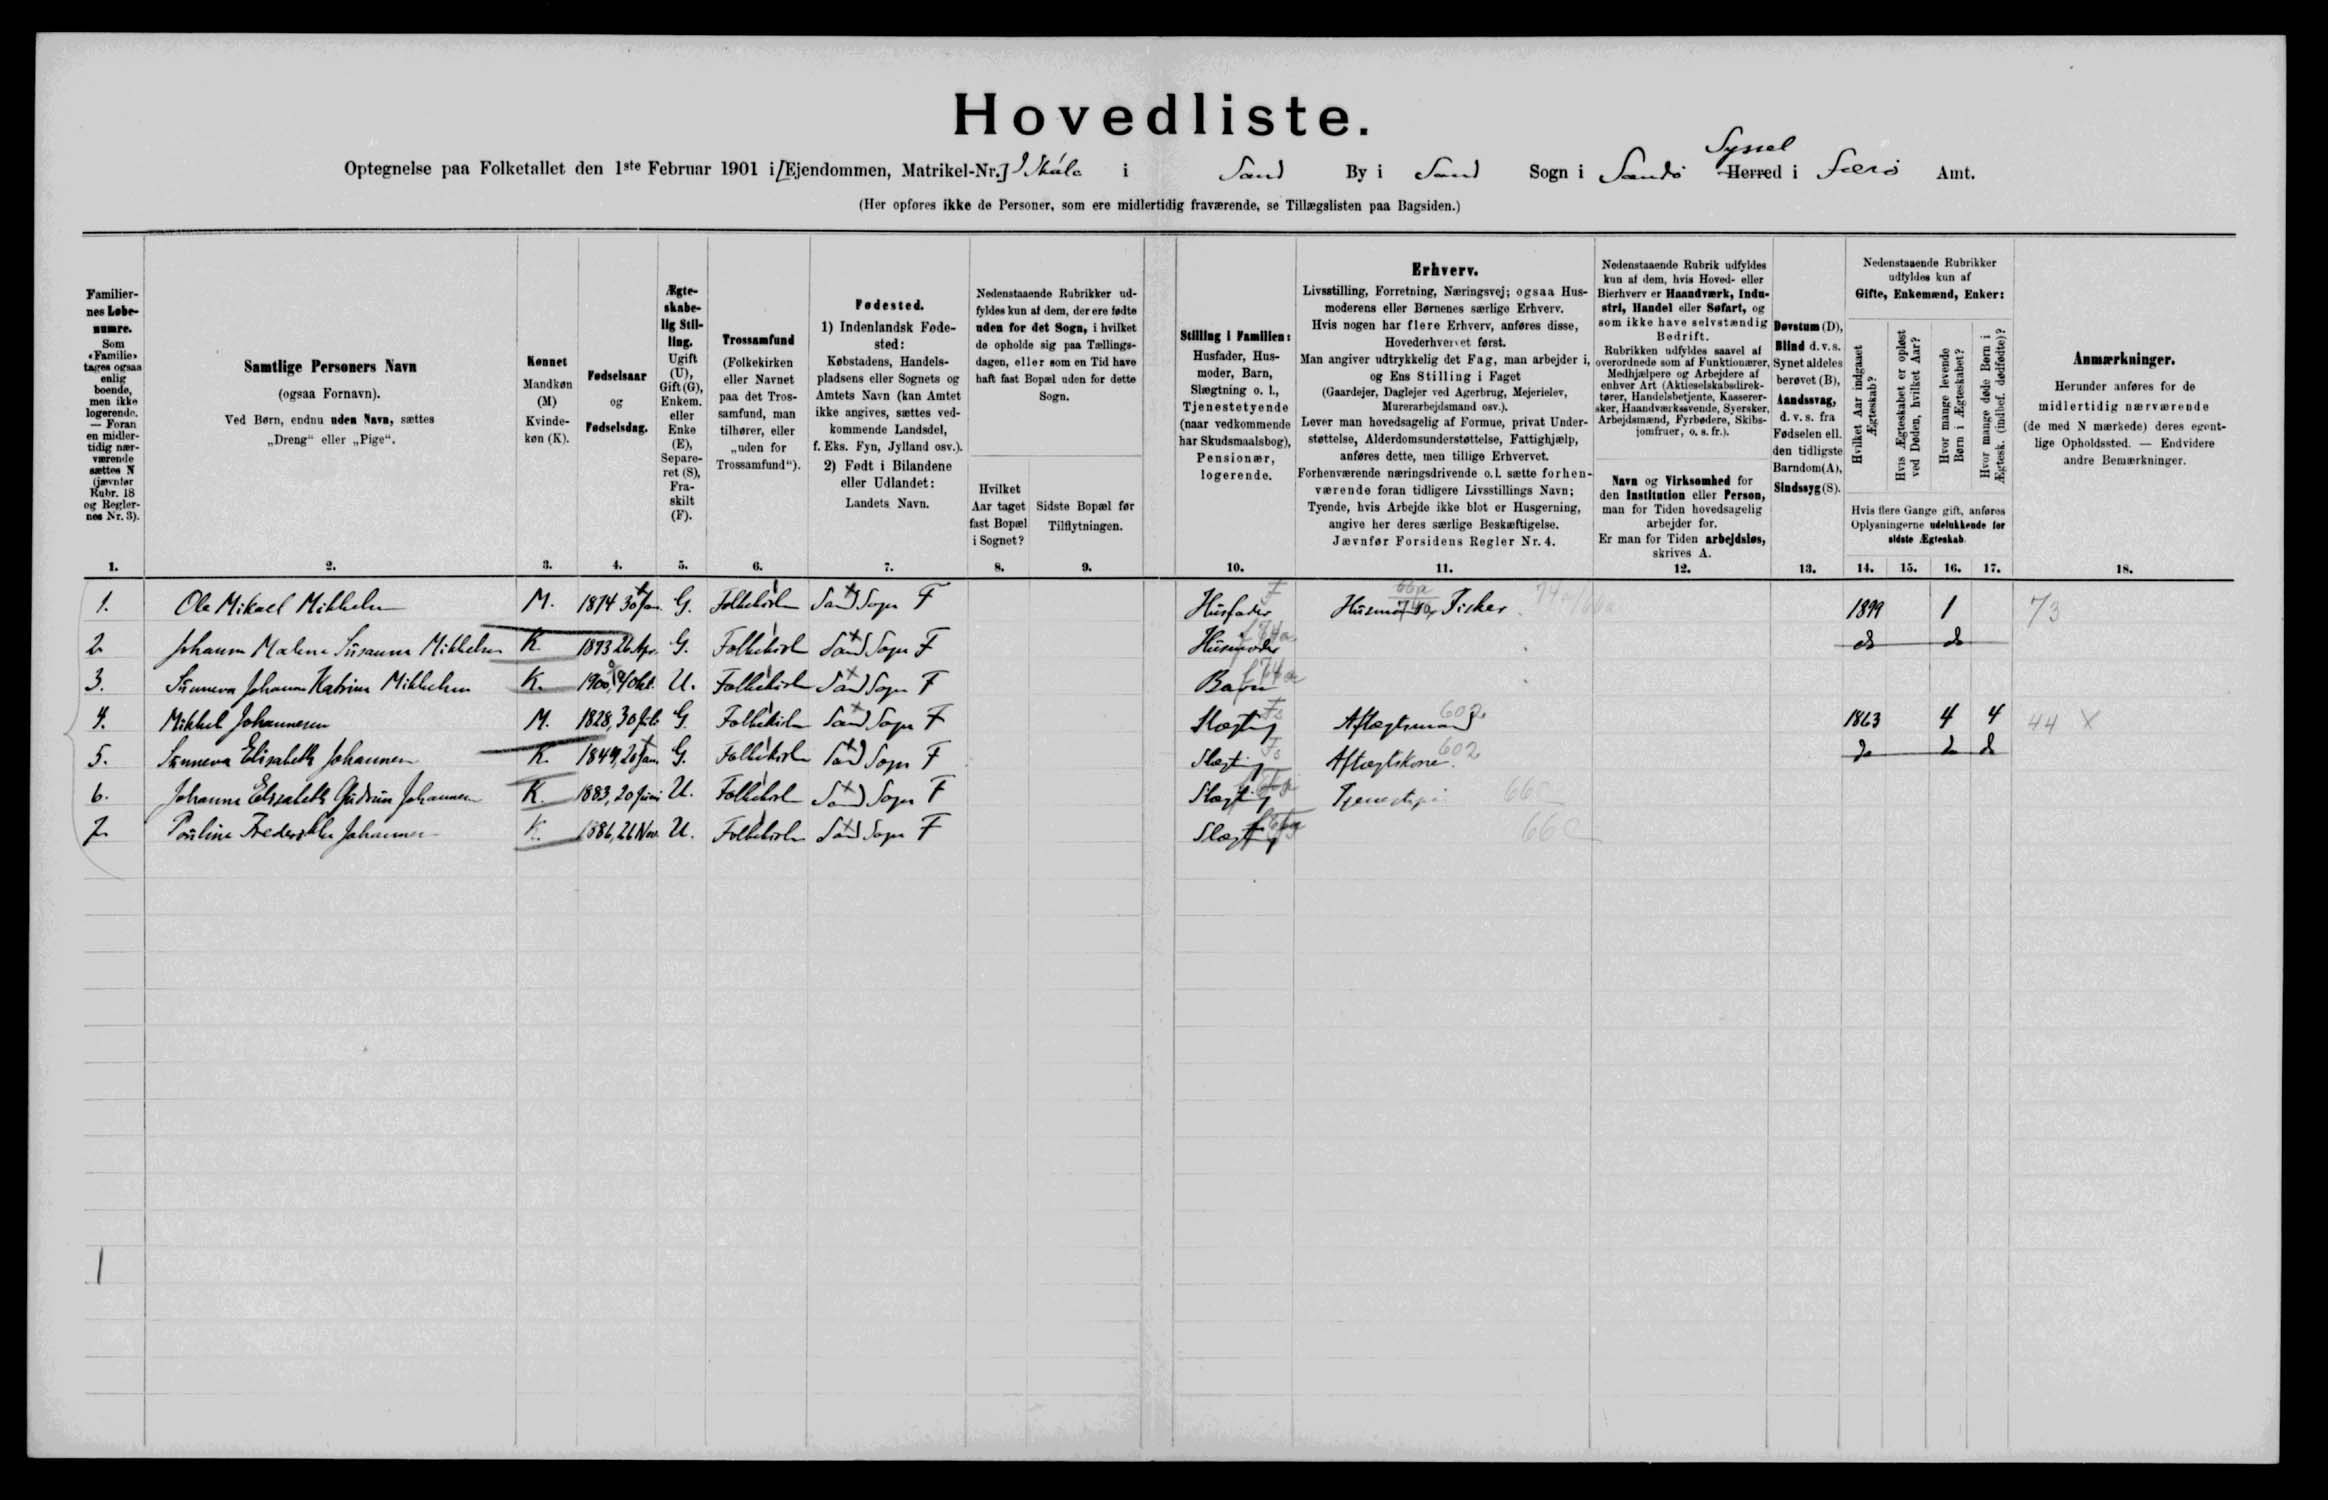 Hovedliste.
Optegnelse paa Folketallet den 1ste Februar 1901 i [Ejendommen, Matrikel-Nr.] I Skála i Sand By i Sand Sogn i Sandø Syssel Herred i Færø Amt.
(Her opføres ikke de Personer, som ere midlertidig fraværende, se Tillægslisten paa Bagsiden.)
Familiernes Løbenumre.
Som «Familie» tages ogsaa enlig boende, men ikke logerende. — Foran en midlertidig nærværende sættes N (jævnfør Rubr. 18 og Reglernes Nr. 3).
1.
Samtlige Personers Navn
(ogsaa Fornavn).
Ved Børn, endnu uden Navn, sættes
„Dreng“ eller „Pige“.
2.
Kønnet
Mandkøn
(M)
Kvinde-
køn (K).
3.
Fødselsaar
og
Fødselsdag.
4.
Ægte-
skabe-
lig Stil-
ling.
Ugift
(U),
Gift (G),
Enkem.
eller
Enke
(E),
Separe-
ret (S),
Fra-
skilt
(F).
5.
Trossamfund
(Folkekirken
eller Navnet
paa det Tros-
samfund, man
tilhører, eller
„uden for
Trossamfund“).
6.
Fødested.
1) IndenlandskFøde-
sted:
Købstadens, Handels-
pladsens eller Sognets og
Amtets Navn (kan Amtet
ikke angives, sættes ved-
kommende Landsdel,
f. Eks. Fyn, Jylland osv.).
2) Født i Bilandene
eller Udlandet:
Landets Navn.
7.
Nedenstaaende Rubrikker ud-
fyldes kun af dem, der ere fødte
uden for det Sogn, i hvilket
de opholde sig paa Tællings-
dagen, eller som en Tid have
haft fast Bopæl uden for dette
Sogn.
Hvilket
Aar taget
fast Bopæl
i Sognet?
8.
Sidste Bopæl før
Tilflytningen.
9.
Stilling i Familien:
Husfader, Hus-
moder, Barn,
Slægtning o. l.,
Tjenestetyende
(naar vedkommende
har Skudsmaalsbog),
Pensionær,
logerende.
10.
Erhverv.
Livsstilling, Forretning, Næringsvej; ogsaa Hus-
moderens eller Børnenes særlige Erhverv.
Hvis nogen har flere Erhverv, anføres disse,
Hovederhvervet først.
Man angiver udtrykkelig det Fag, man arbejder i,
og Ens Stilling i Faget
(Gaardejer, Daglejer ved Agerbrug, Mejerielev,
Murerarbejdsmand osv.).
Lever man hovedsagelig af Formue, privat Under-
støttelse, Alderdomsunderstøttelse, Fattighjælp,
anføres dette, men tillige Erhvervet.
Forhenværende næringsdrivende o. l. sætte forhen-
værende foran tidligere Livsstillings Navn;
Tyende, hvis Arbejde ikke blot er Husgerning,
angive her deres særlige Beskæftigelse.
Jævnfør Forsidens Regler Nr. 4.
11.
Nedenstaaende Rubrik udfyldes
kun af dem, hvis Hoved- eller
Bierhverv er Haandværk, Indu-
stri, Handel eller Søfart, og
som ikke have selvstændig
Bedrift.
Rubrikken udfyldes saavel af
overordnede som af Funktionærer,
Medhjælpere og Arbejdere af
enhver Art (Aktieselskabsdirek-
tører, Handelsbetjente, Kasserer-
sker, Haandværkssvende, Syersker,
Arbejdsmænd, Fyrbødere, Skibs-
jomfruer, o. s. fr.).
Navn og Virksomhed for
den Institution eller Person,
man for Tiden hovedsagelig
arbejder for.
Er man for Tiden arbejdsløs,
skrives A.
12.
Døvstum (D),
Blind d. v. s.
Synet aldeles
berøvet (B),
Aandssvag,
d. v. s. fra
Fødselen ell.
den tidligste
Barndom (A),
Sindssyg (S).
13.
Nedenstaaende Rubrikker
udfyldes kun af
Gifte, Enkemænd, Enker:
Hvilket Aar indgaaet Ægteskab?
Hvis Ægteskabet er opløst ved Døden, hvilket Aar?
Hvor mange levende Børn i Ægteskabet?
Hvor mange døde Børn i Ægtesk. (indbef. dødfødte)?
Hvis flere Gange gift, anføres
Oplysningerne udelukkende for
sidste Ægteskab.
14. 15. 16. 17.
Anmærkninger.
Herunder anføres for de
midlertidig nærværende
(de med N mærkede) deres egent-
lige Opholdssted. — Endvidere
andre Bemærkninger.
18.
1. Ole Mikael Mikkelsen M. 1874 30 Jan. G. Folkekirken Sand Sogn F Husfader Husmand, Fisker 1899 1 73
2. Johanne Malene Susanne Mikkelsen K. 1873 26 Apr. G. Folkekirken Sand Sogn F Husmoder do do
3. Sunneva Johanne Katrine Mikkelsen K. 1900, Okt. U. Folkekirken Sand Sogn F Barn
4. Mikkel Johannesen M. 1828, 30 G. Folkekirken Sand Sogn F Slægtning Aftægtsmand 602 1863 4 4 44 X
5. Sunneva Elisabeth Johannesen K. 1844, 20 Jan. G. Folkekirken Sand Sogn F Slægtning Aftægtskone 602 do do do
6. Johanne Elisabeth Gudrun Johannesen K. 1883, 20 Juni U. Folkekirken Sand Sogn F Slægtning Tjenestepi 66c
7. Pouline Frederikke Johannesen K. 1886, 26 Nov. U. Folkekirken Sand Sogn F Slægtning 66c
1